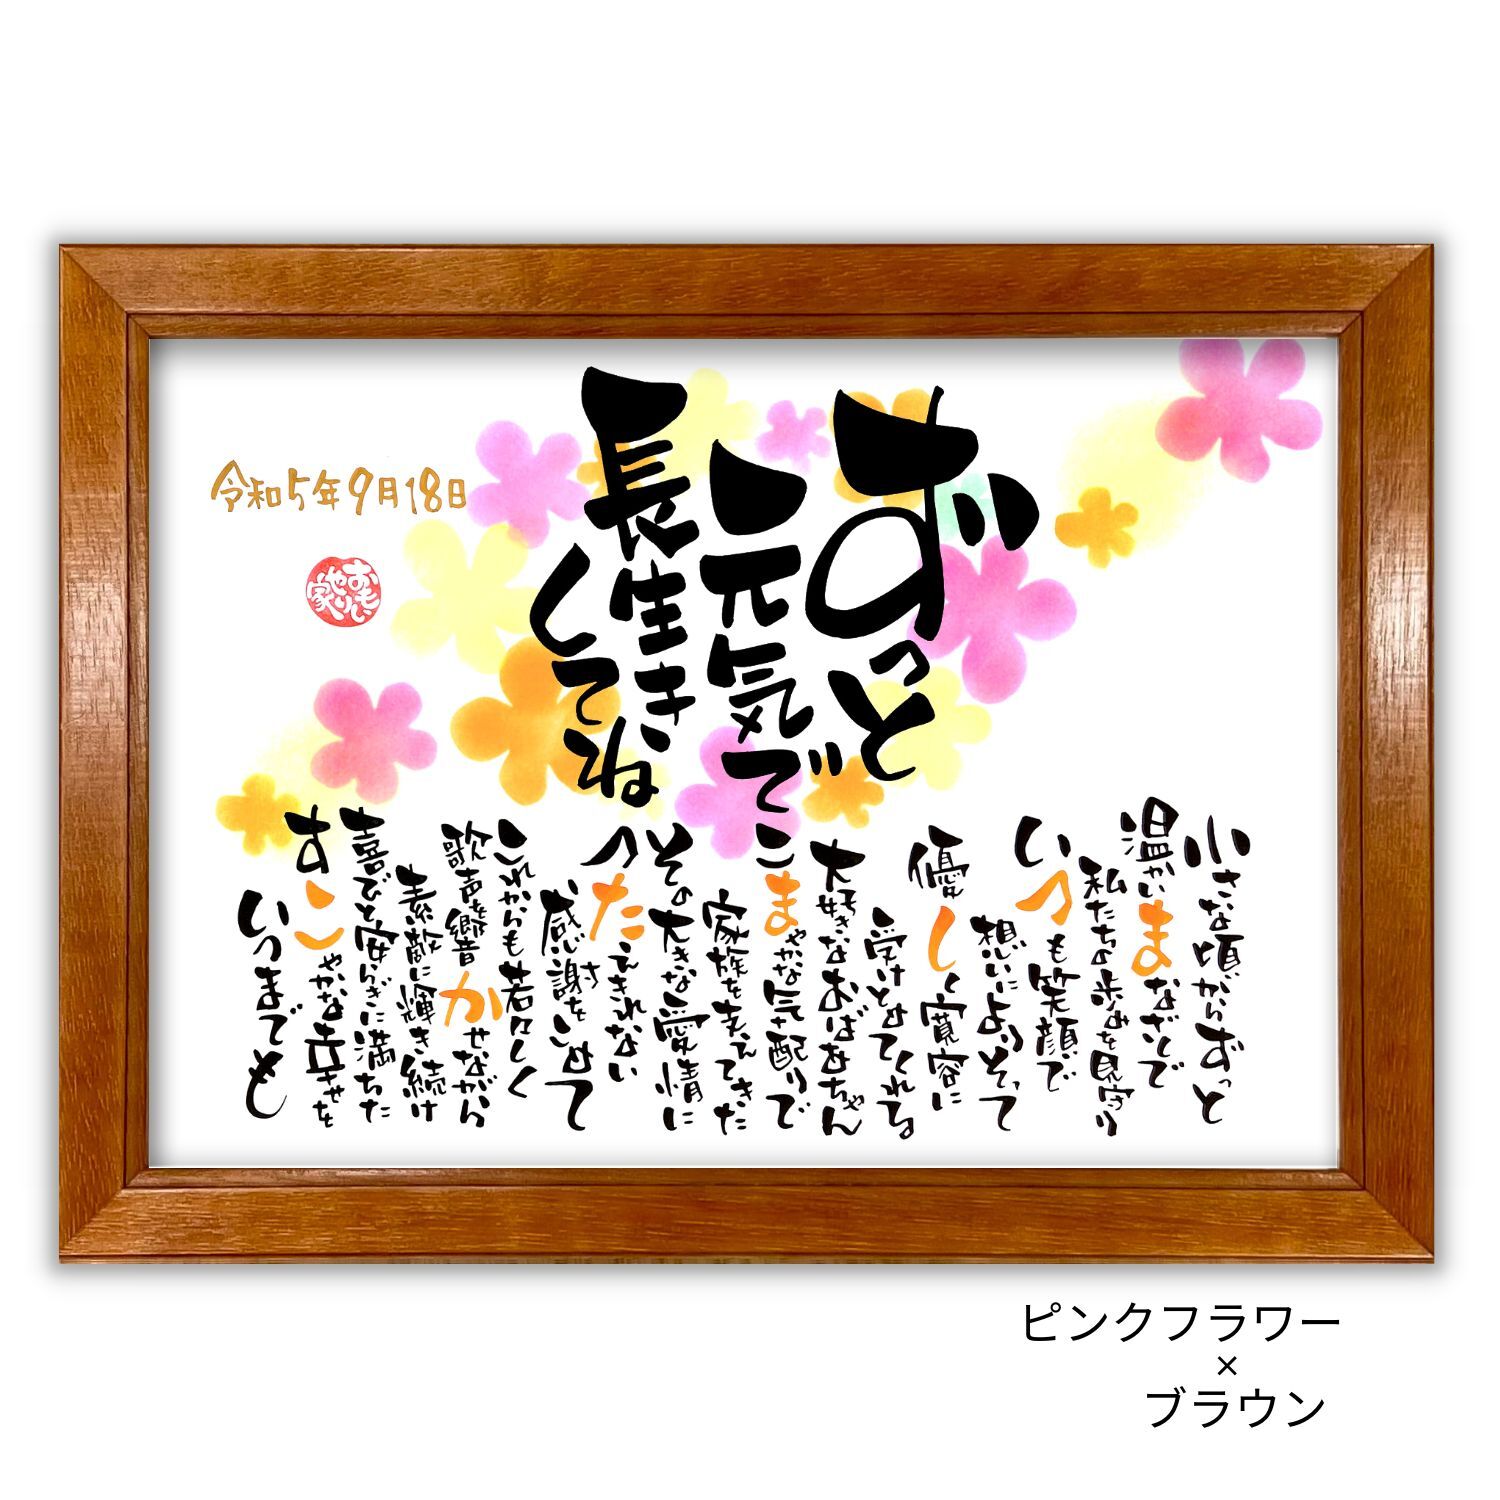 ずっと
元気で
長生き
してね
令和5年9月18日
おもい
やり
家
小さな頃からずっと
温かいまなざしで
私たちの歩みを見守り
いつも笑顔で
想いによりそって
優しく寛容に
受けとめてくれる
大好きなおばあちゃん
こまやかな気配りで
家族を支えてきた
その大きな愛情に
つたえきれない
感謝をこめて
これからも若々しく
歌声を響かせながら
素敵に輝き続け
喜びと安らぎに満ちた
すこやかな幸せを
いつまでも
ピンクフラワー
×
ブラウン